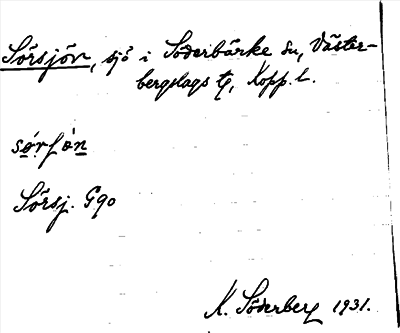 Sörsjön, sjö i Söderbärke sn, Väster-
bergslags tg, Kopp. l.
sø̀rʃøn
Sörsj. G90
K. Söderberg 1931.